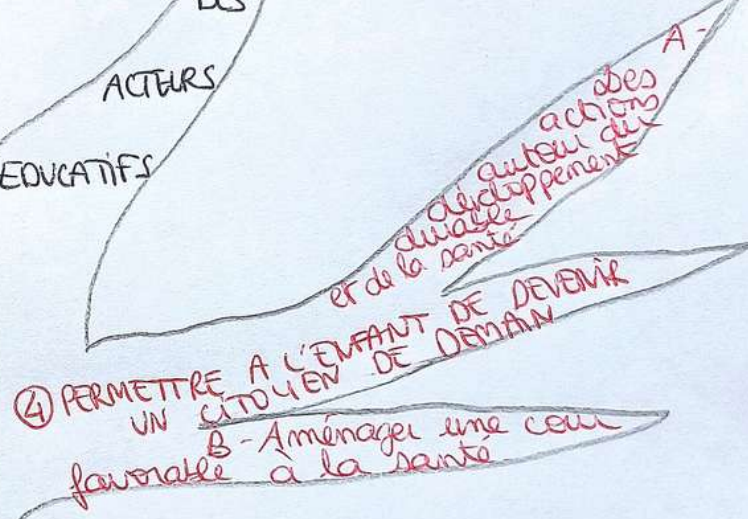 DES
ACTEURS
EDUCATIFS
A -
Des
actions
autour du
développement
durable
et de la santé
④ PERMETTRE A L'ENFANT DE DEVENIR
UN CITOYEN DE DEMAIN
B - Aménager une cour
favorable à la santé